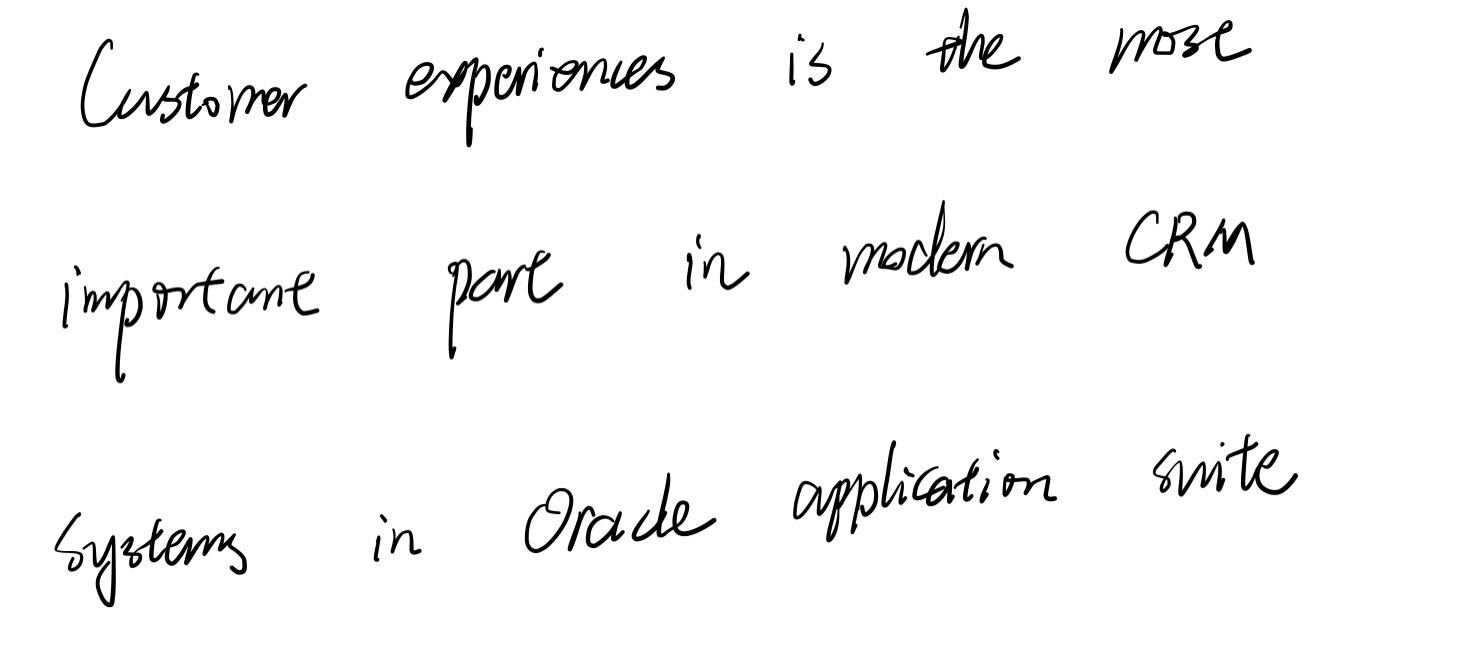 Customer experiences is the most
important part in modern CRM
systems in Oracle application suite